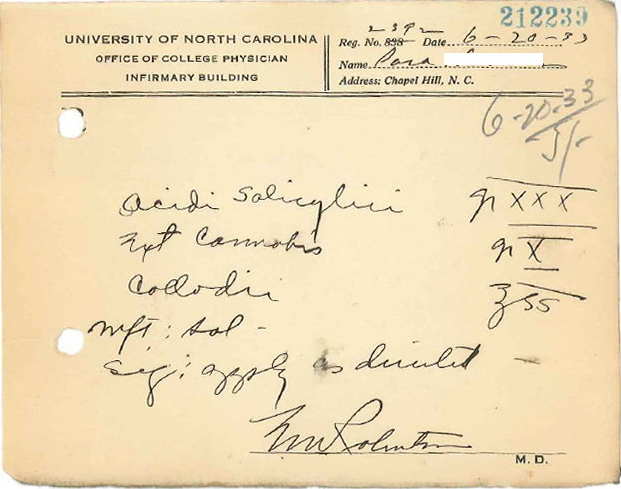 212239
UNIVERSITY OF NORTH CAROLINA
OFFICE OF COLLEGE PHYSICIAN
INFIRMARY BUILDING
2392
Reg. No. 838 Date 6-20-33
Name
Address: Chapel Hill, N. C.
6-20-33
Acidi Salicylici gr XXX
Ext Cannabis gr X
Collodii ℥ss
Mft: Sol -
Sig: apply as directed -
M. D.